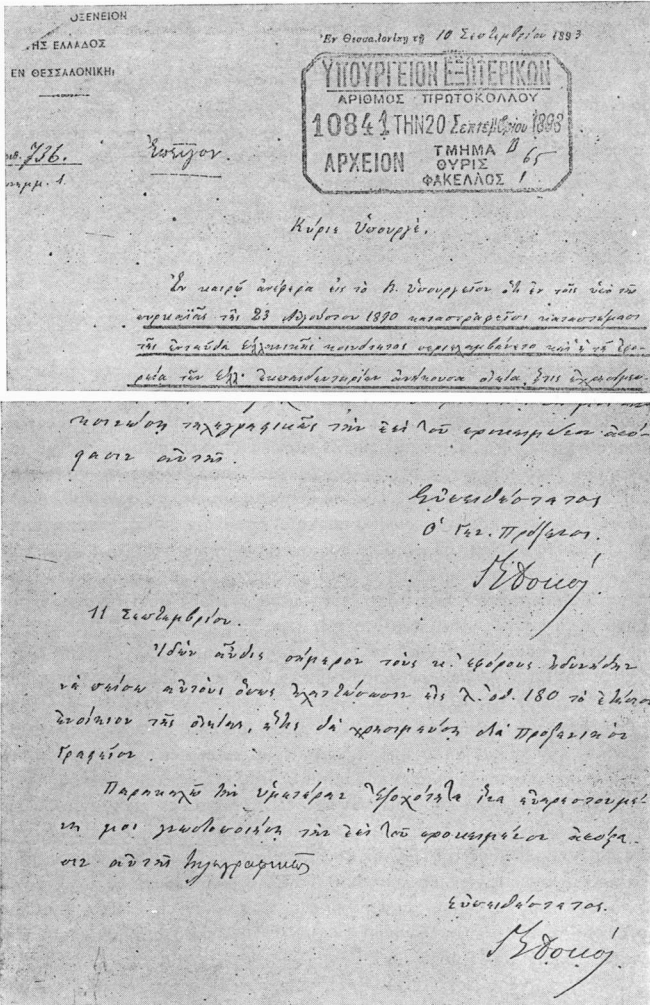 ΟΞΕΝΕΙΟΝ
ΤΗΣ ΕΛΛΑΔΟΣ
ΕΝ ΘΕΣΣΑΛΟΝΙΚΗι
Ἐν Θεσσαλονίκῃ τῇ 10 Σεπτεμβρίου 1893
ΥΠΟΥΡΓΕΙΟΝ ΕΞΩΤΕΡΙΚΩΝ
ΑΡΙΘΜΟΣ ΠΡΩΤΟΚΟΛΛΟΥ
10841 ΤΗΝ 20 Σεπτεμβρίου 1893
ΑΡΧΕΙΟΝ
ΤΜΗΜΑ
ΘΥΡΙΣ 65
ΦΑΚΕΛΛΟΣ 1
ιθ. 736.
νημμ. 1.
Ἐπεῖγον.
Κύριε Ὑπουργέ,
Ἐν καιρῷ ἀνέφερα εἰς τὸ Β. Ὑπουργεῖον ὅτι ἐν τοῖς ὑπὸ τῆς
πυρκαϊᾶς τῆς 23 Αὐγούστου 1890 καταστραφεῖσι καταστήμασι
τῆς ἐνταῦθα ἑλληνικῆς κοινότητος περιελαμβάνετο καὶ ἡ τῇ ἐφο-
ρείᾳ τῶν ἑλλ. ἐκπαιδευτηρίων ἀνήκουσα οἰκία, ἥτις ἐχρησίμευ-
τηλεγραφικῶς τὴν ἐπὶ τοῦ προκειμένου ἀπό-
φασιν αὐτῆς.
Εὐπειθέστατος
Ὁ Γεν. Πρόξενος
Γ. Δοκός
11 Σεπτεμβρίου.
Ἰδὼν αὖθις σήμερον τοὺς κ. ἐφόρους ἠδυνήθην
νὰ πείσω αὐτοὺς ὅπως ἐλαττώσωσιν εἰς λ. ὀθ. 180 τὸ ἐτήσιον
ἐνοίκιον τῆς οἰκίας, ἥτις θὰ χρησιμεύσῃ διὰ Προξενικὸν
Γραφεῖον.
Παρακαλῶ τὴν ὑμετέραν Ἐξοχότητα ἵνα εὐαρεστουμέ-
νη μοι γνωστοποιήσῃ τὴν ἐπὶ τοῦ προκειμένου ἀπόφα-
σιν αὐτῆς τηλεγραφικῶς
Εὐπειθέστατος.
Γ. Δοκός